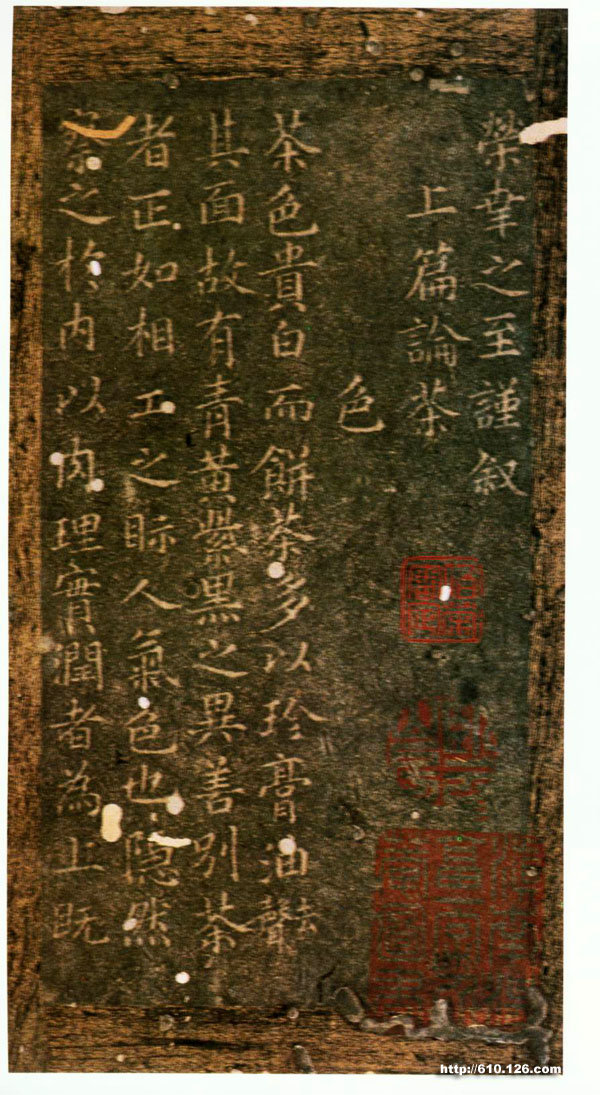 榮幸之至謹叙
上篇論茶
色
茶色貴白而餅茶多以珍膏油去聲
其面故有青黃紫黑之異善別茶
者正如相工之眎人氣色也隱然
察之於内以肉理實潤者為上既
http://610.126.com